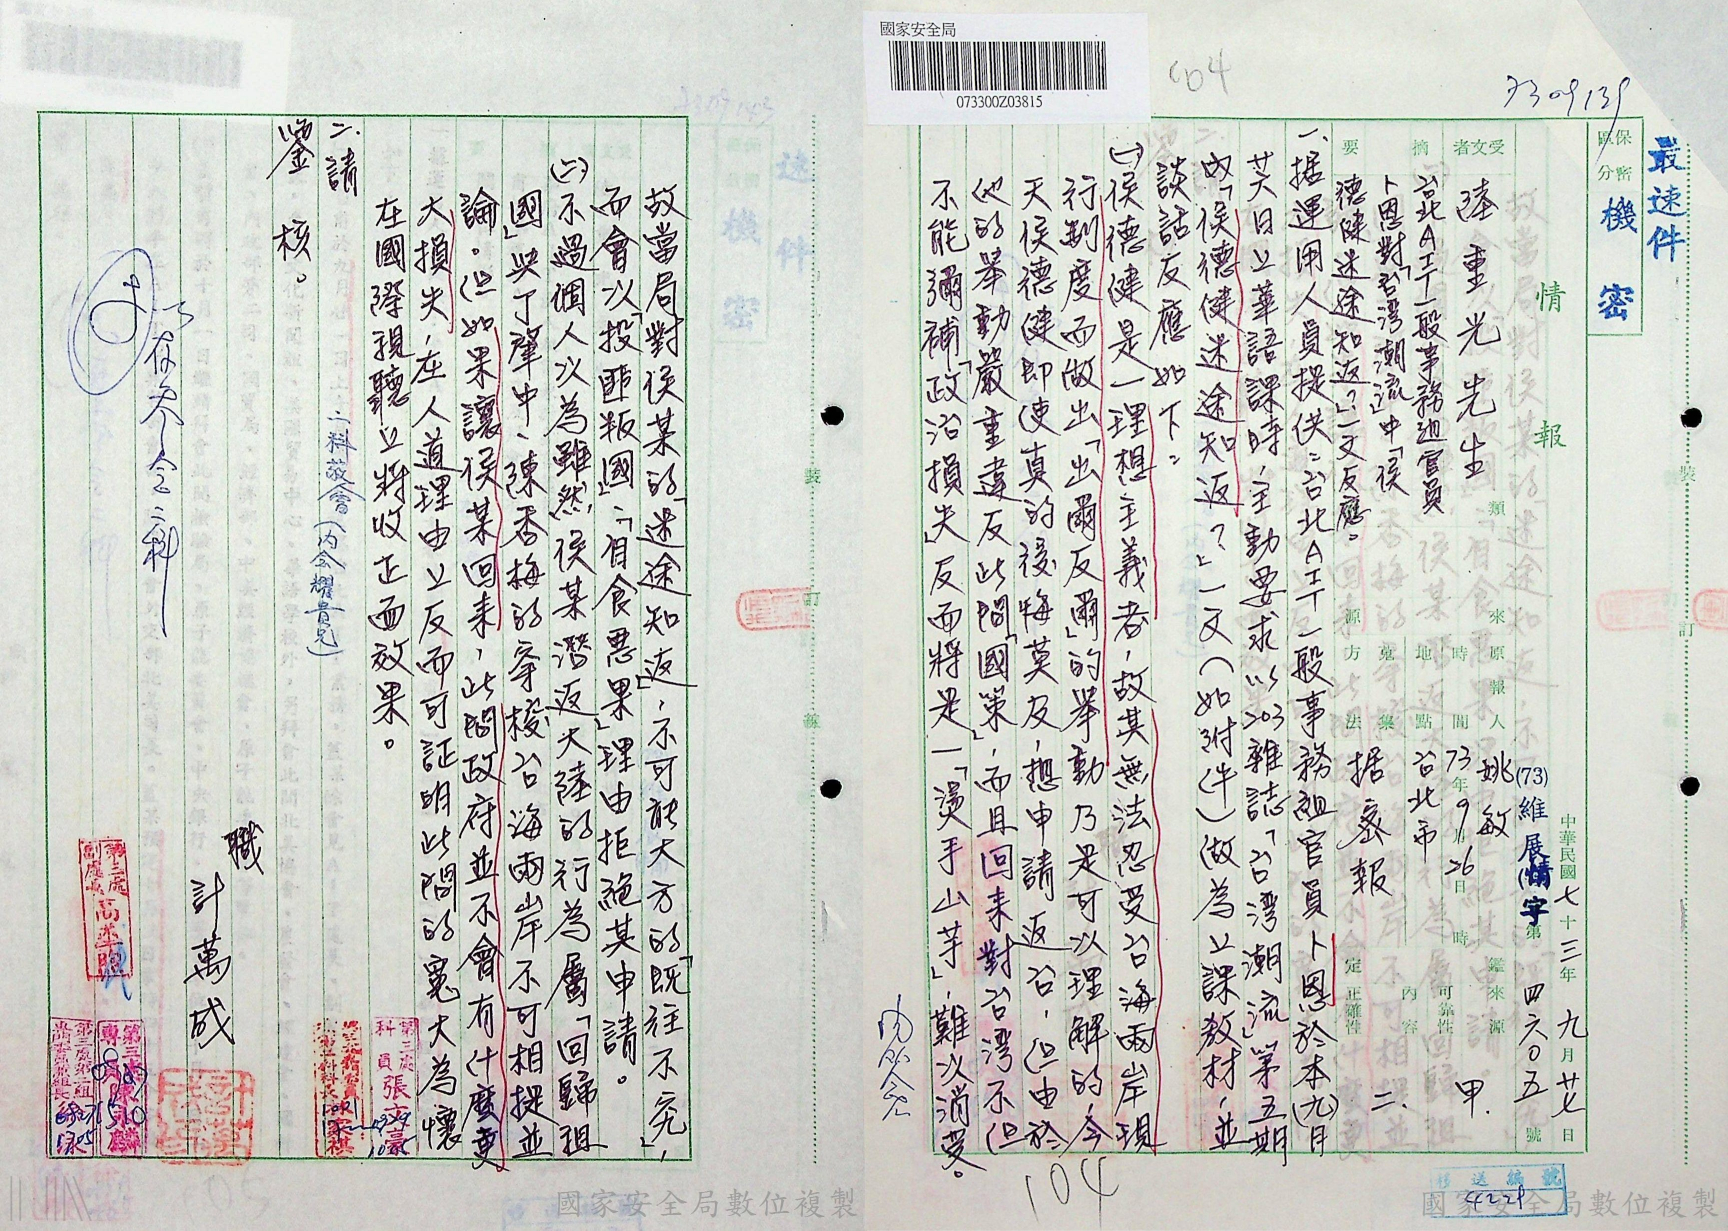 國家安全局
073300Z03815
004
7309139
最速件
保密區分
機密
情報
(73)維展(情)字第四六〇五號
中華民國七十三年九月廿七日
受文者
陸重光先生
類
來原報人
姚敏
鑑來源
甲.
摘要
台北AIT一般事務組官員
卜恩對「台灣潮流」中「侯
德健迷途知返?」一文反應。
時間
73年9月26日時
地點
台北市
可靠性
內容
二.
源方法
蒐集
据密報
定正確性
一、据運用人員提供:台北AIT一般事務組官員卜恩於本(九)月
廿六日上華語課時,主動要求以203雜誌「台灣潮流」第五期
內「侯德健迷途知返?」一文(如附件)做為上課教材,並
談話反應如下:
(一)侯德健是一理想主義者,故其無法忍受台海兩岸現
行制度而做出「出爾反爾」的舉動乃是可以理解的,今
天侯德健即使真的後悔莫及,想申請返台,但由於
他的舉動嚴重違反此間「國策」,而且回來對台灣不但
不能彌補「政治損失」反而將是一「燙手山芋」,難以消受。
故當局對侯某的「迷途知返」,不可能大方的「既往不究」,
而會以「投匪叛國」、「自食惡果」理由拒絕其申請。
(二)不過個人以為雖然,侯某潛返大陸的行為屬「回歸祖
國」與丁肇中、陳香梅的穿梭台海兩岸不可相提並
論。但如果讓侯某回來,此間政府並不會有什麼更
大損失,在人道理由上反而可証明此間的寬大為懷
在國際視聽上將收正面效果。
二、請
鑒核。
職
計萬成
二科敬會(內会耀貴兄)
存参
会二科
第三處副處長高
第三處科員張文豪
104
移送編號
4229
裝訂線
國家安全局數位複製
國家安全局數位複製